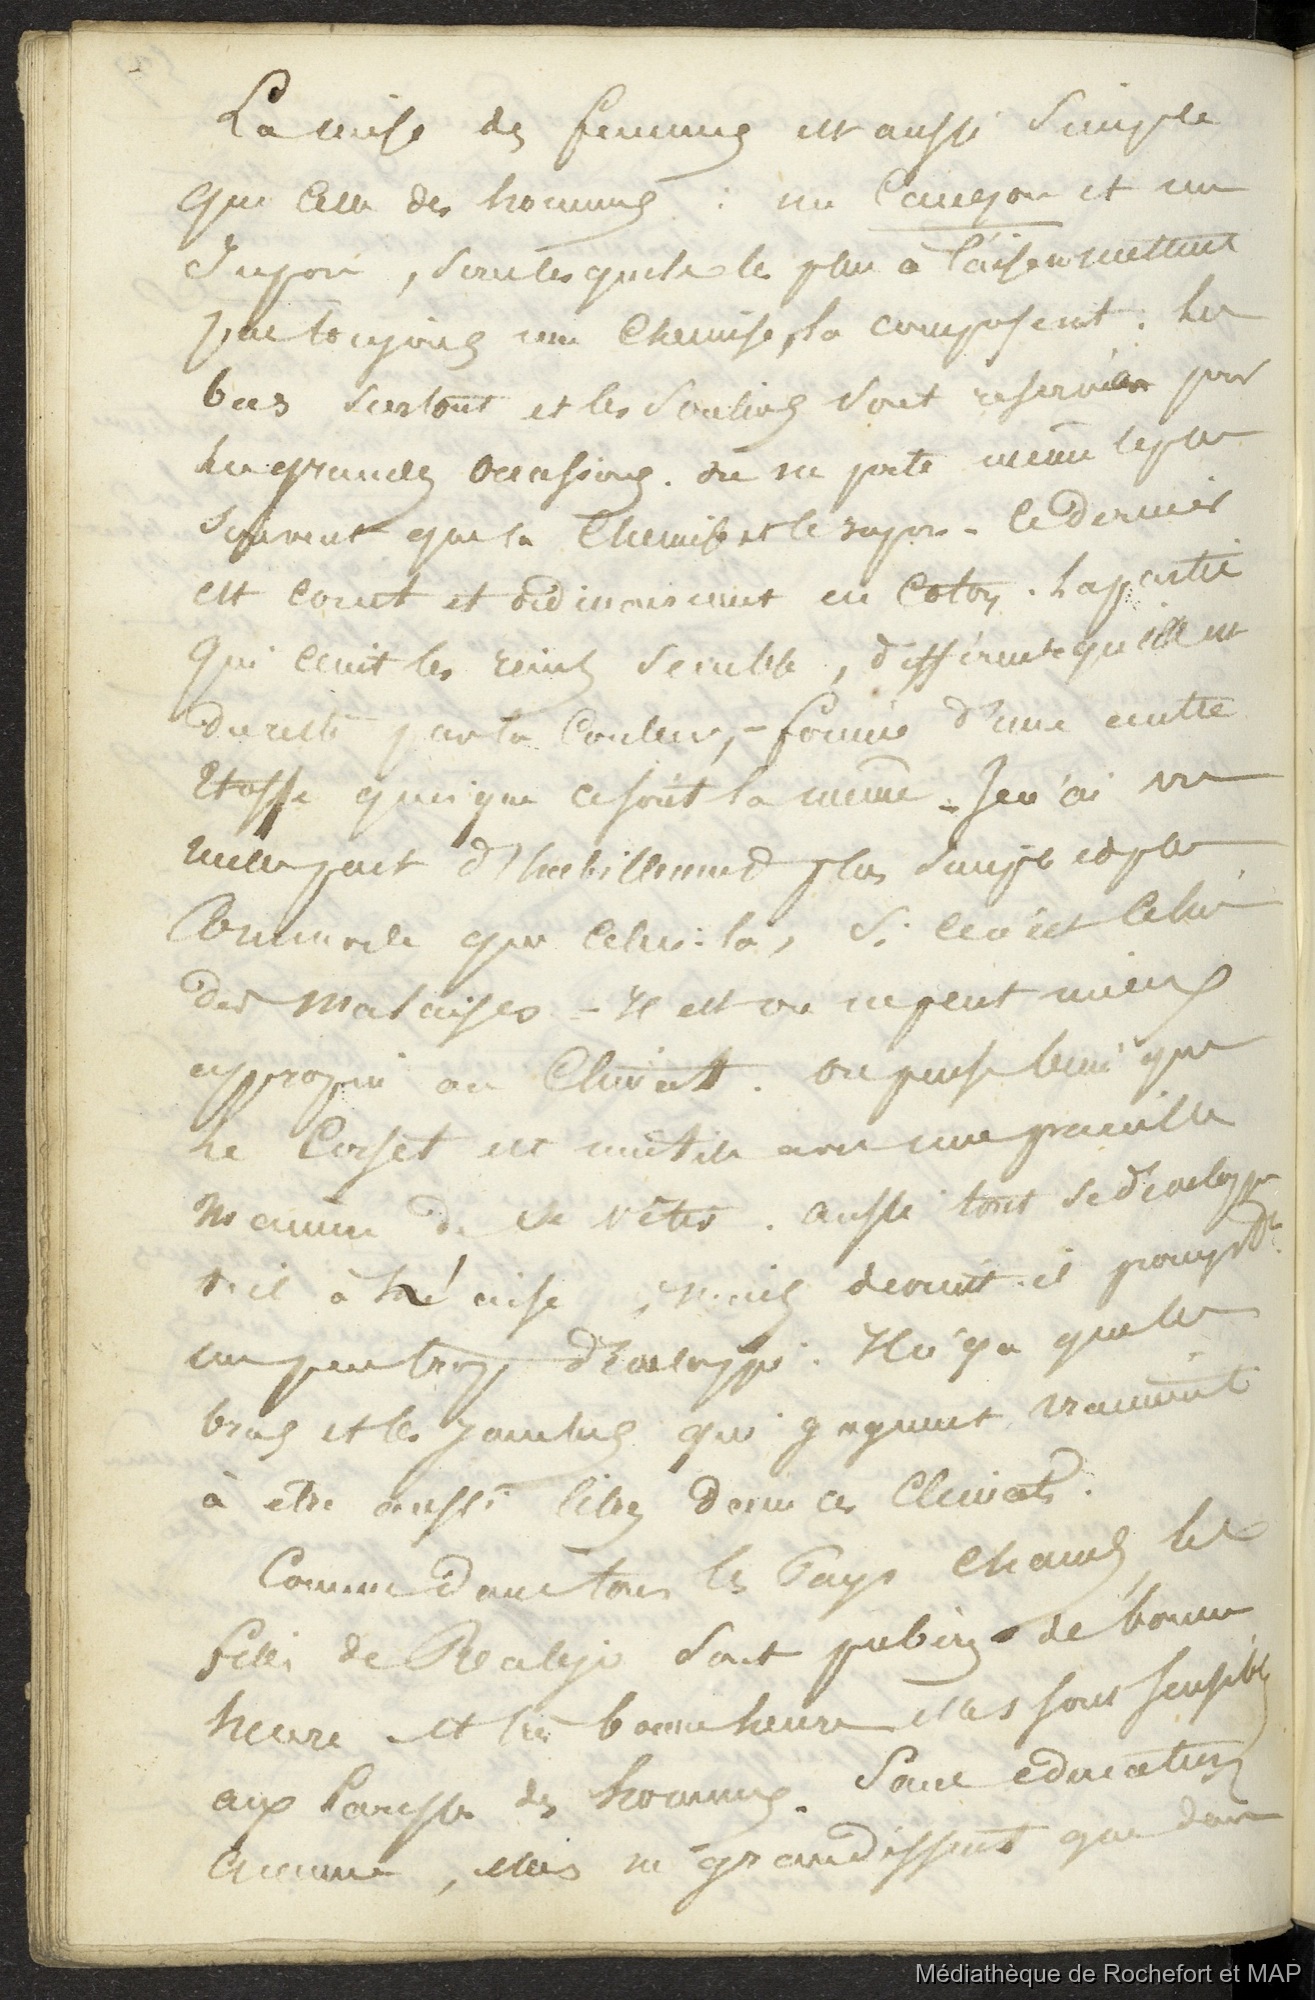 La mise des femmes est aussi simple
que celle des hommes : un Caneson et un
Jupon, sous lesquels les plus à l'aise mettent
pas toujours une Chemise, la composent. Les
bas surtout et les Souliers sont reservés pour
les grandes occasions. On ne porte même le plus
souvent que la Chemise et le jupon - Ce dernier
est court et ordinairement en Coton. La partie
qui ceint les reins semble, différente qu'elle est
du reste par la Couleur, - formée d'une autre
Etoffe quoique ce soit la même - Je n'ai vu
nulle part d'habillement plus simple et plus
Commode que celui-là, Si ce n'est Celui
des Malaises - Il est on ne peut mieux
approprié au Climat. On pense bien que
le Corset est inutile avec une pareille
manière de se vêter. aussi tout se développe
t-il à l'aise, mais devient-il promptt.
un peu trop développé. Il n'y a que les
bras et les jambes qui gagnent vraiment
à être aussi libres dans ces Climats.
Comme dans tous les Pays Chauds, les
filles de Realejo sont pubères de bonne
heure et de bonne heure elles sont sensibles
aux des hommes. Sans education
aucune, elles ne grandissent que dans
Médiathèque de Rochefort et MAP